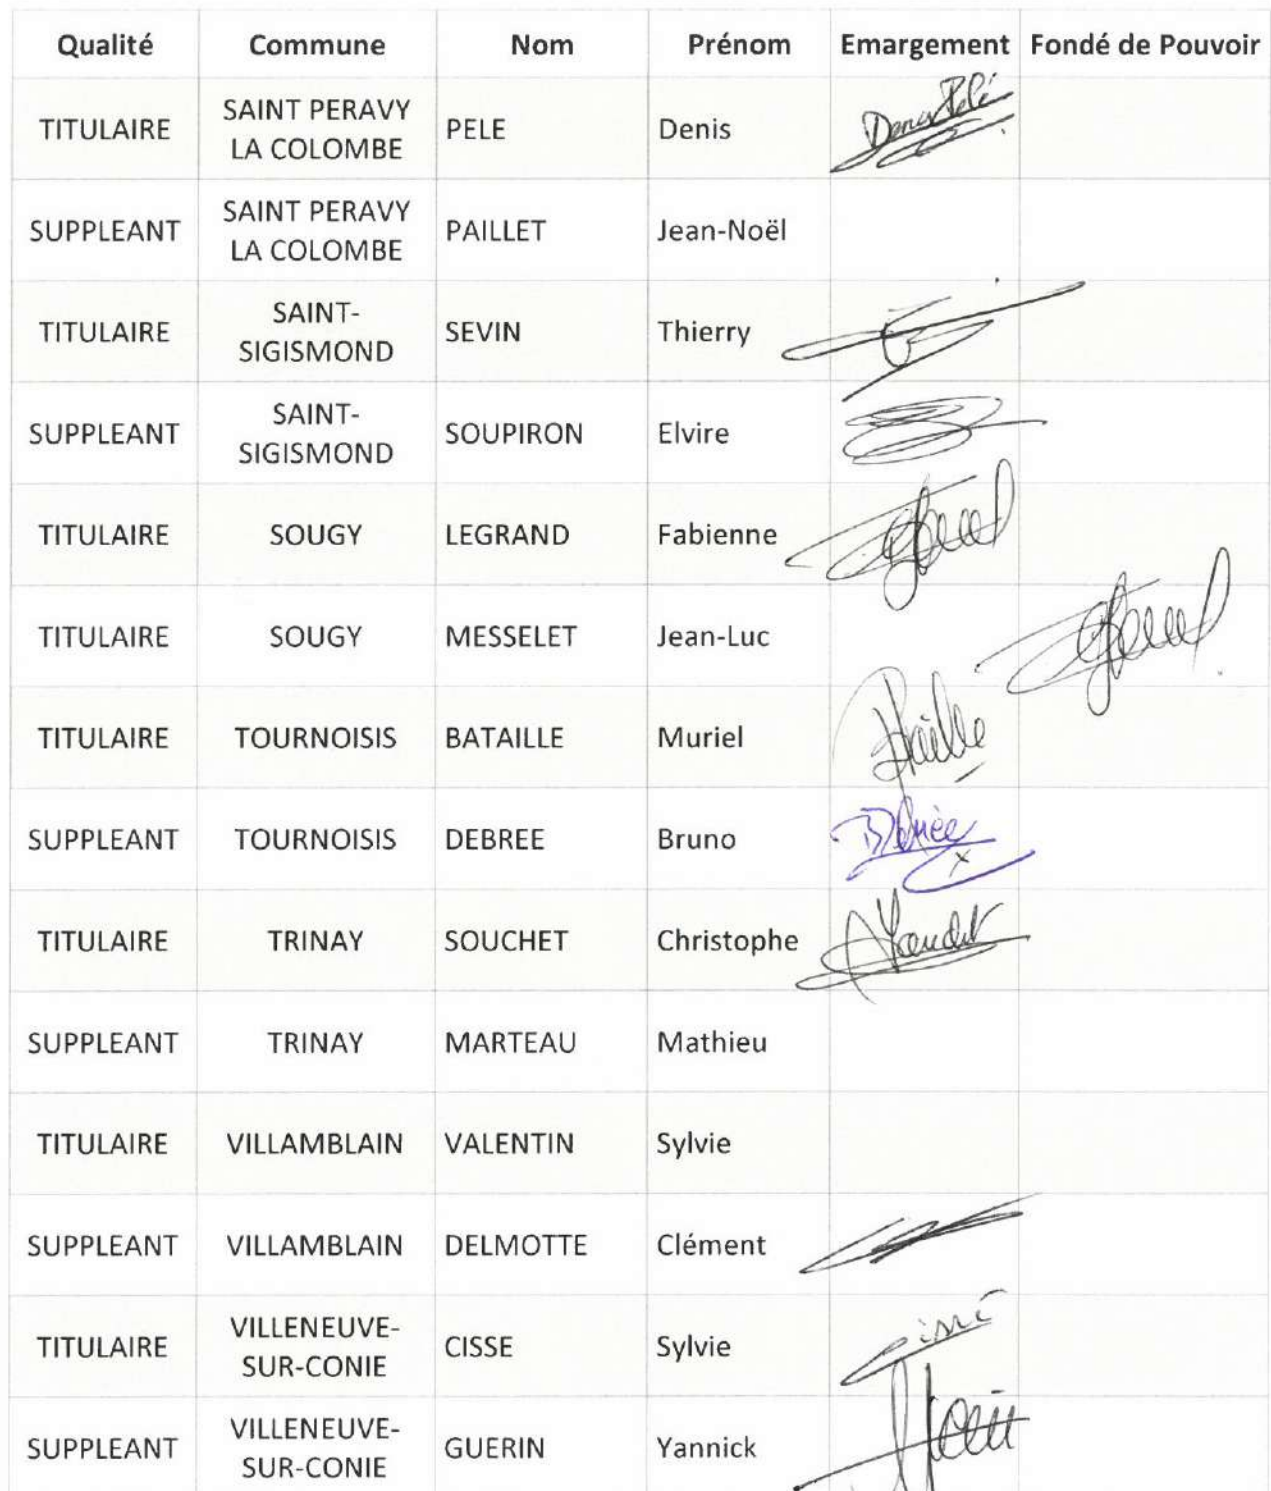 Qualité Commune Nom Prénom Emargement Fondé de Pouvoir
TITULAIRE SAINT PERAVY LA COLOMBE PELE Denis Denis Pelé
SUPPLEANT SAINT PERAVY LA COLOMBE PAILLET Jean-Noël
TITULAIRE SAINT-SIGISMOND SEVIN Thierry
SUPPLEANT SAINT-SIGISMOND SOUPIRON Elvire
TITULAIRE SOUGY LEGRAND Fabienne
TITULAIRE SOUGY MESSELET Jean-Luc
TITULAIRE TOURNOISIS BATAILLE Muriel
SUPPLEANT TOURNOISIS DEBREE Bruno
TITULAIRE TRINAY SOUCHET Christophe
SUPPLEANT TRINAY MARTEAU Mathieu
TITULAIRE VILLAMBLAIN VALENTIN Sylvie
SUPPLEANT VILLAMBLAIN DELMOTTE Clément
TITULAIRE VILLENEUVE-SUR-CONIE CISSE Sylvie
SUPPLEANT VILLENEUVE-SUR-CONIE GUERIN Yannick